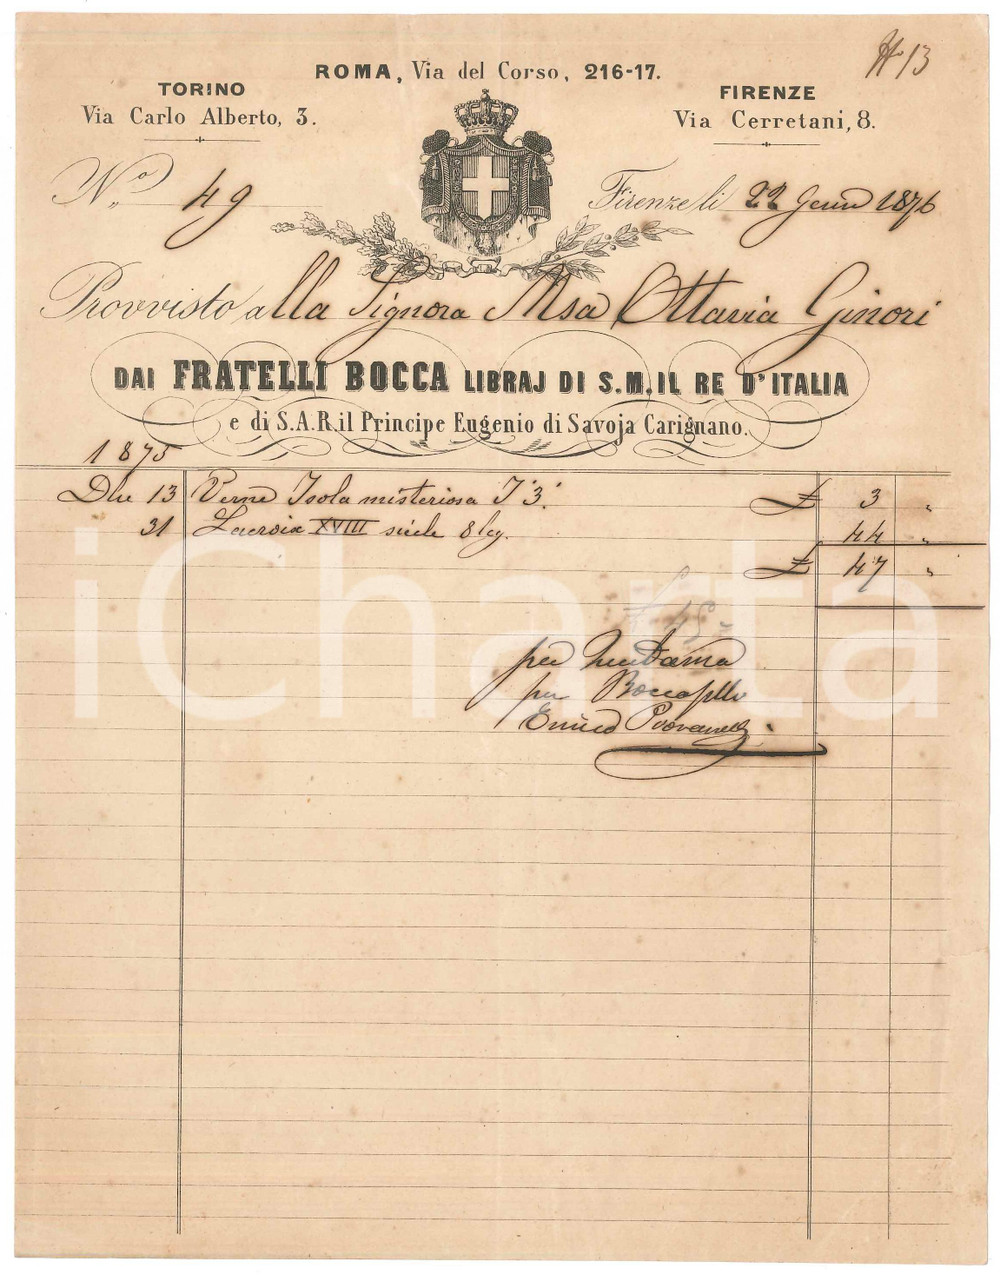 H 13
ROMA, Via del Corso, 216-17.
TORINO
Via Carlo Alberto, 3.
FIRENZE
Via Cerretani, 8.
N.º 49
Firenze li 22 Genn 1876
Provvisto alla Signora Msa Ottavia Ginori
DAI FRATELLI BOCCA LIBRAJ DI S.M. IL RE D'ITALIA
e di S.A.R. il Principe Eugenio di Savoja Carignano.
1875
Dbe 13 Verne Isola misteriosa T 3. £ 3 "
31 Lacroix XVIII siècle 8 leg. 44 "
£ 47 "
£ 45 "
per
per Bocca flli
Enrico
iCharta